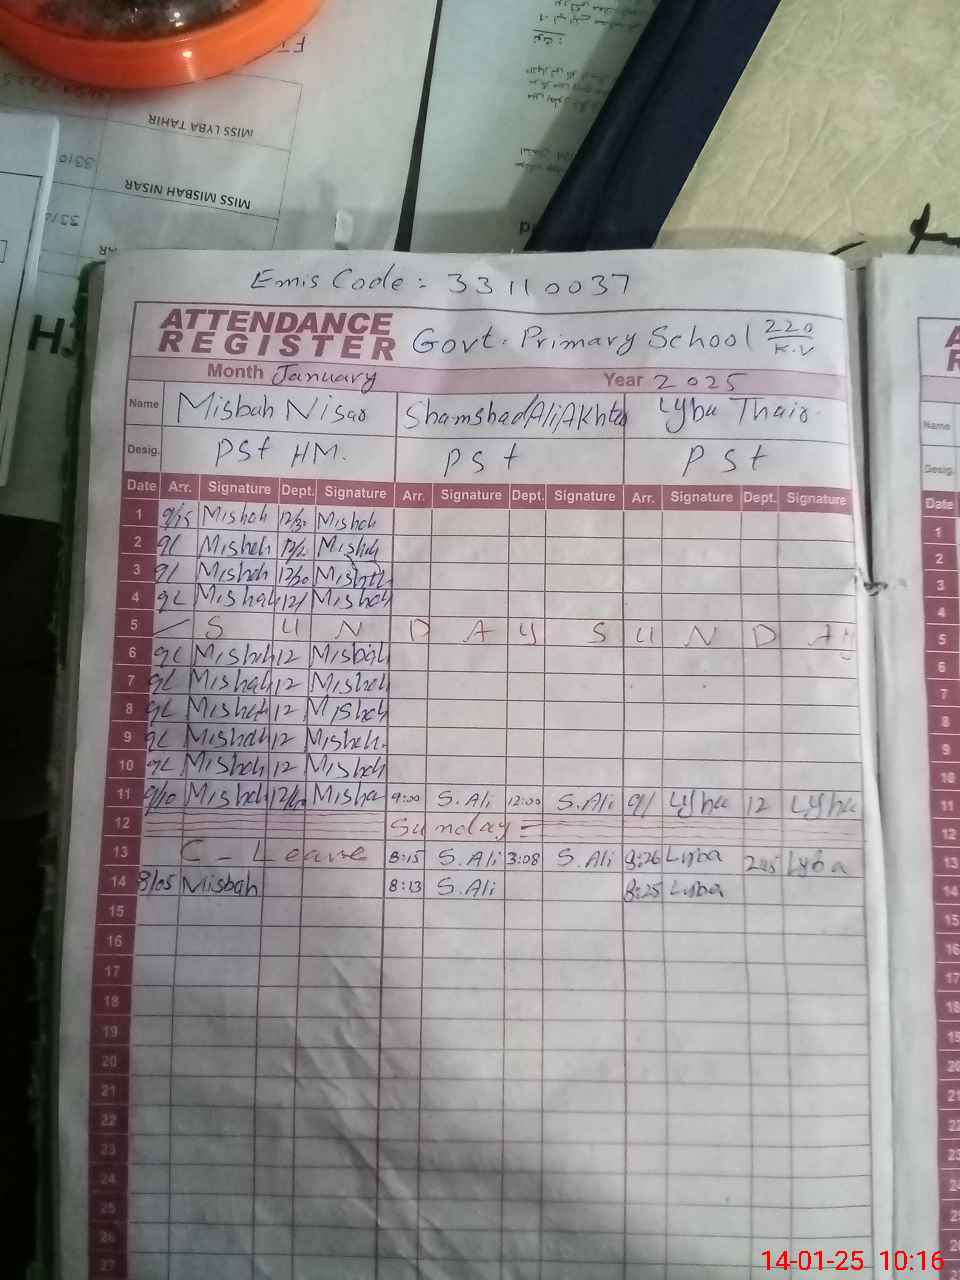 MISS LYBA TAHIR
3310
MISS MISBAH NISAR
Emis Code: 33110037
ATTENDANCE REGISTER Govt. Primary School 220/R.V
Month January Year 2025
Name Misbah Nisar Shamshad Ali Akhter Lyba Thair
Desig. PSt HM. PSt PSt
Date Arr. Signature Dept. Signature Arr. Signature Dept. Signature Arr. Signature Dept. Signature
1 9/15 Misbah 12/30 Misbah
2 Misbah Misbah
3 Misbah 12/20 Misbah
4 Misbah 12/ Misbah
5 S U N D A Y S U N D A Y
6 Misbah 12 Misbah
7 Misbah 12 Misbah
8 Misbah 12 Misbah
9 Misbah 12 Misbah
10 Misbah 12 Misbah
11 9/10 Misbah Misba 9:00 S.Ali 12:00 S.Ali 9/ Lyba 12 Lyba
12 Sunday
13 C - Leave 8:15 S.Ali 3:08 S.Ali 8:26 Lyba Lyba
14 8/05 Misbah 8:13 S.Ali 8:25 Lyba
15
16
17
18
19
20
21
22
23
24
25
26
27
Name
Desig.
Date
1
2
3
4
5
6
7
8
9
10
11
12
13
14
15
16
17
18
19
14-01-25 10:16